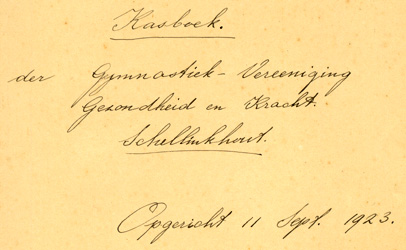 Kasboek.
der Gymnastiek-Vereeniging
Gezondheid en Kracht.
Schellinkhout.
Opgericht 11 Sept. 1923.